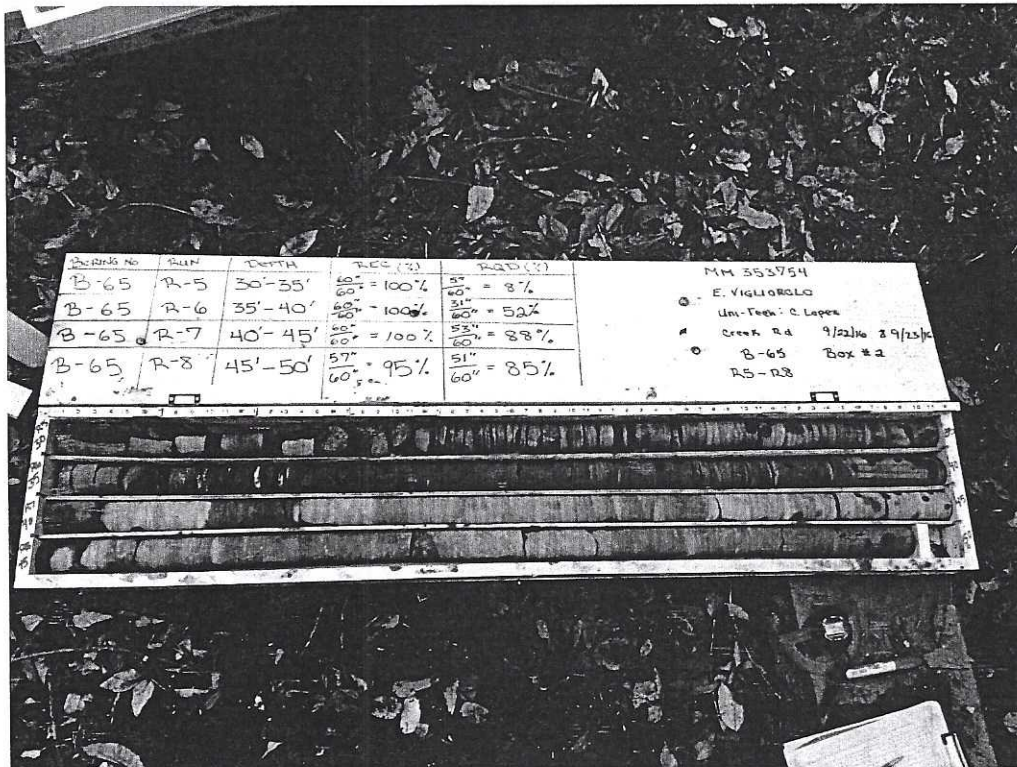 BORING NO RUN DEPTH REC (%) RQD (%)
B-65 R-5 30'-35' 60"/60" = 100% 5"/60" = 8%
B-65 R-6 35'-40' 60"/60" = 100% 31"/60" = 52%
B-65 R-7 40'-45' 60"/60" = 100% 53"/60" = 88%
B-65 R-8 45'-50' 57"/60" = 95% 51"/60" = 85%
MM 353754
E. VIGLIOROLO
Uni-Tech: C. Lopez
Creek Rd 9/22/16 & 9/23/16
B-65 Box #2
R5-R8
45